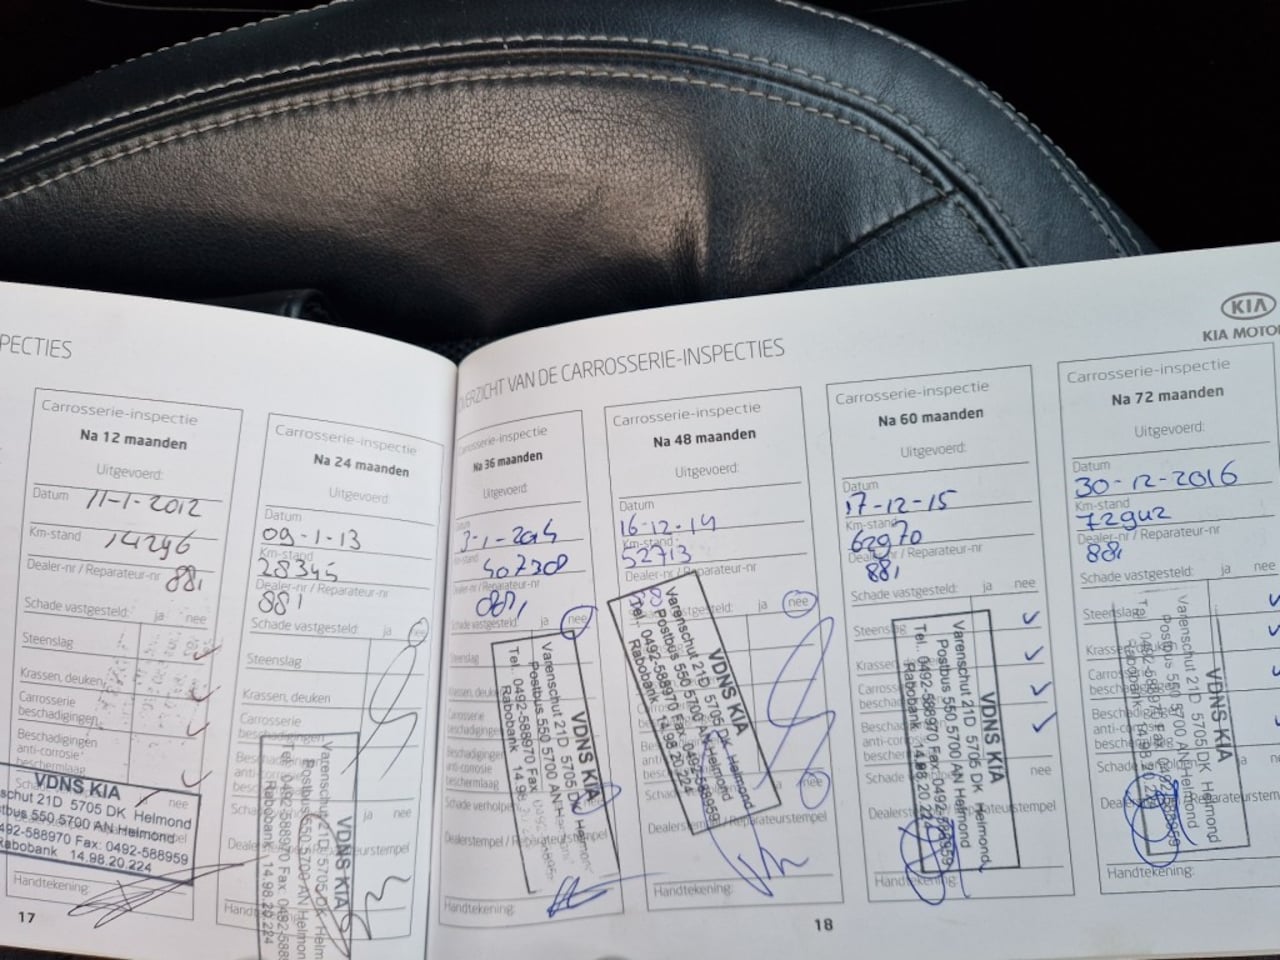 PECTIES
Carrosserie-inspectie
Na 12 maanden
Uitgevoerd:
Datum 11-1-2012
Km-stand 14296
Dealer-nr / Reparateur-nr 881
Schade vastgesteld: ja nee
Steenslag
Krassen, deuken
Carrosserie
beschadigingen
Beschadigingen
anti-corrosie
beschermlaag
nee
VDNS KIA
schut 21D 5705 DK Helmond
stbus 550 5700 AN Helmond
492-588970 Fax: 0492-588959
Rabobank 14.98.20.224
Handtekening:
17
Carrosserie-inspectie
Na 24 maanden
Uitgevoerd:
Datum
09-1-13
Km-stand
28345
Dealer-nr / Reparateur-nr
881
Schade vastgesteld: ja nee
Steenslag
Krassen, deuken
Carrosserie
beschadigingen
ja nee
VDNS KIA
Varenschut 21D 5705 DK Helm
Postbus 550 5700 AN Helmon
Tel. 0492-588970 Fax 0492-588
Rabobank 14.98.20.224
OVERZICHT VAN DE CARROSSERIE-INSPECTIES
KIA
KIA MOTO
Carrosserie-inspectie
Na 36 maanden
Uitgevoerd:
Dealer-nr / Reparateur-nr
881
Schade vastgesteld: ja nee
Steenslag
Krassen, deuken
Carrosserie
beschadigingen
Beschadigingen
anti-corrosie
beschermlaag
Schade verholpen
Dealerstempel / Reparateurstempel
VDNS KIA
Varenschut 21D 5705 DK Helmond
Postbus 550 5700 AN Helmond
Tel. 0492-588970 Fax
Rabobank 14.98
Handtekening:
Carrosserie-inspectie
Na 48 maanden
Uitgevoerd:
Datum
16-12-14
Km-stand
52713
Dealer-nr / Reparateur-nr
ja nee
VDNS KIA
Varenschut 21D 5705 DK Helmond
Postbus 550 5700 AN Helmond
Tel. 0492-588970 Fax 0492-588959
Rabobank 14.98.20.224
Handtekening:
18
Carrosserie-inspectie
Na 60 maanden
Uitgevoerd:
Datum
17-12-15
Km-stand
62970
Dealer-nr / Reparateur-nr
881
Schade vastgesteld: ja nee
Steenslag
Krassen
nee
VDNS KIA
Varenschut 21D 5705 DK Helmond
Postbus 550 5700 AN Helmond
Tel. 0492-588970 Fax 0492-588959
Rabobank 14.98.20.224
Handtekening:
Carrosserie-inspectie
Na 72 maanden
Uitgevoerd:
Datum
30-12-2016
Km-stand
72942
Dealer-nr / Reparateur-nr
881
Schade vastgesteld: ja nee
Steenslag
VDNS KIA
Varenschut 21D 5705 DK Helmond
Postbus 550 5700 AN Helmond
Handtekening: